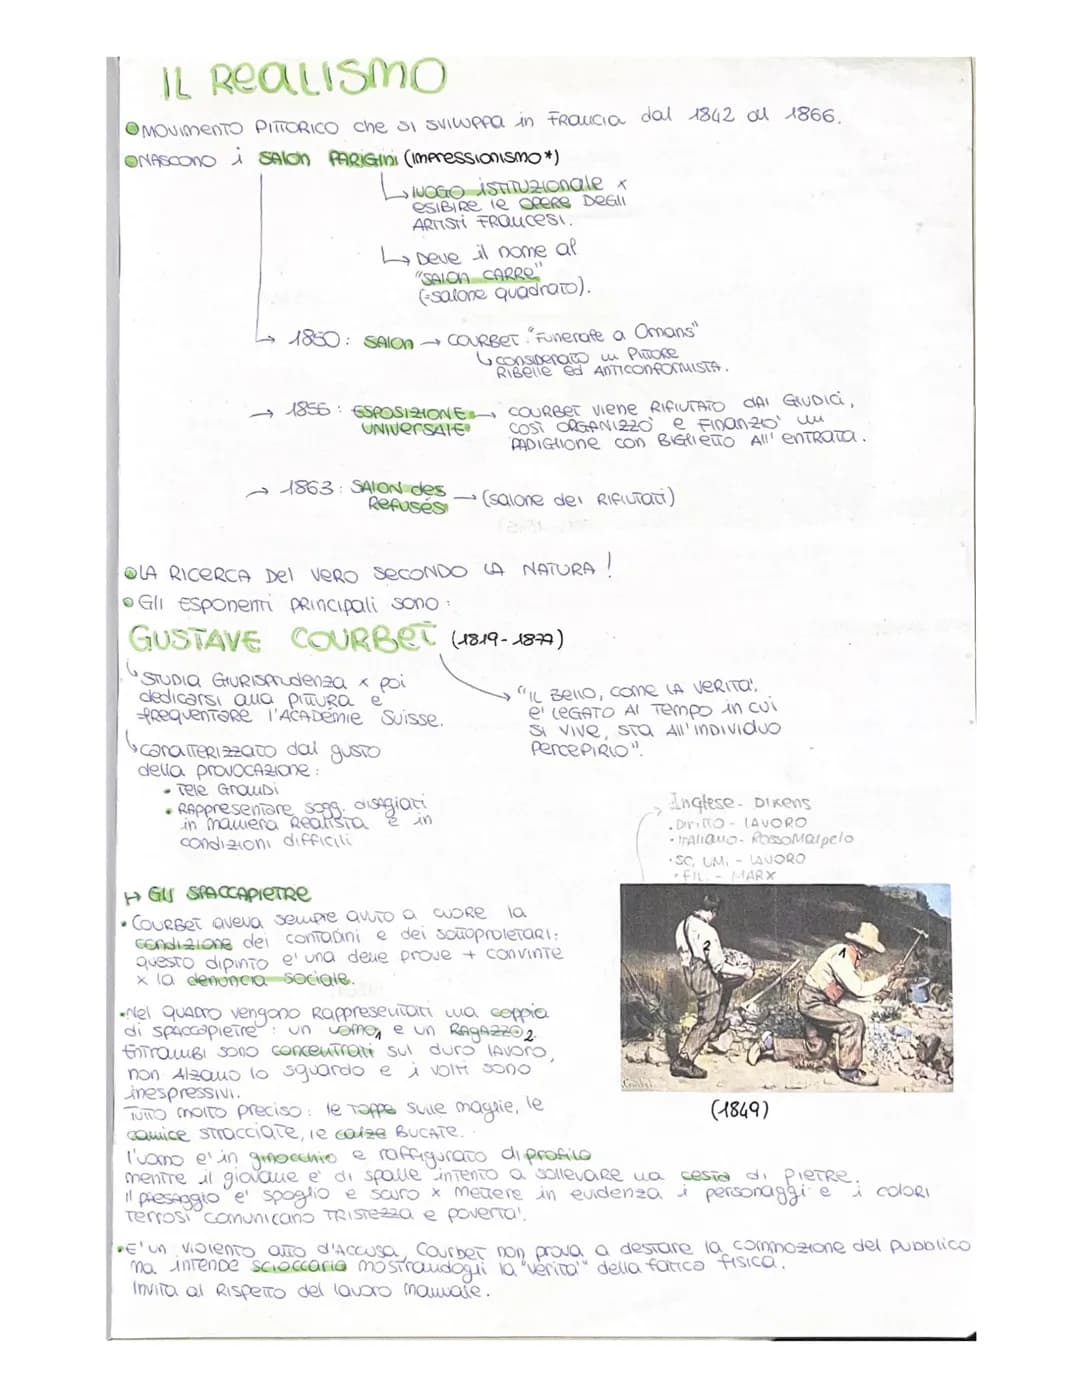 IL REALISMO
MOVIMENTO PITTORICO che si sviluppa in FRANCIA dal 1842 al 1866.
NASCONO i SALON PARIGINI (IMPRESSIONISMO*)
LUOGO ISTITUZIONALE x
ESIBIRE le OPERE DEGLI
ARTISTI FRANCESI.
Deve il nome al
"SALON CARRE"
(=salone quadrato).
1850: SALON → COURBET "Funerale a Ornans"
CONSIDERATO un PITTORE
RIBELLE ed ANTICONFORMISTA.
1855: ESPOSIZIONE → COURBET viene RIFIUTATO DAI GIUDICI,
UNIVERSALE COSÌ ORGANIZZO' e FINANZIO' un
PADIGLIONE con BIGLIETTO All' ENTRATA.
1863: SALON des → (salone dei RIFIUTATI)
Refusés
LA RICERCA Del VERO SECONDO LA NATURA!
Gli ESPONENTI PRINCIPALI sono:
GUSTAVE COURBET (1819-1877)
STUDIA GIURISPRUDENZA x poi
dedicarsi alla PITTURA e
frequentare l'ACADÉMIE Suisse.
"IL Bello, come LA VERITA',
e' LEGATO Al TEMPO in cui
SI VIVE, STA All'INDIVIDUO
PERCEPIRLO".
caratterizzato dal gusto
della PROVOCAZIONE:
• Tele GRANDI
• RAPPRESENTARE sogg. disagiati
in maniera Realista e in
condizioni difficili
Inglese- DIKENS
• DIRITTO - LAVORO
• ITALIANO - ROSSO Malpelo
• SC. UM. - LAVORO
• FIL. - MARX
↦ Gli SPACCAPIETRE
• COURBET aveva sempre avuto a CUORE la
condizione dei contadini e dei sottoproletari:
questo dipinto e' una delle prove + convinte
x la denuncia sociale.
• Nel QUADRO vengono RAPPRESENTATI una coppia
di SPACCAPIETRE: un uomo1 e un RAGAZZO2.
ENTRAMBI sono concentrati sul duro lavoro,
non Alzano lo sguardo e i volti sono
inespressivi.
TUTTO molto preciso: le TOPPE sulle maglie, le
camice STRACCIATE, le calze BUCATE.
l'uomo e' in ginocchio e raffigurato di profilo
mentre il giovane e' di spalle intento a sollevare una cesta di PIETRE.
Il paesaggio e' spoglio e scuro x mettere in evidenza i personaggi e i COLORI
TERROSI comunicano TRISTEZZA e POVERTA'.
2
1
Courbet
(1849)
• E' un VIOLENTO atto d'ACCUSA, Courbet non prova a destare la commozione del pubblico
ma intende scioccarlo mostrandogli la "verita'" della fatica fisica.
Invita al RISPETTO del lavoro manuale.